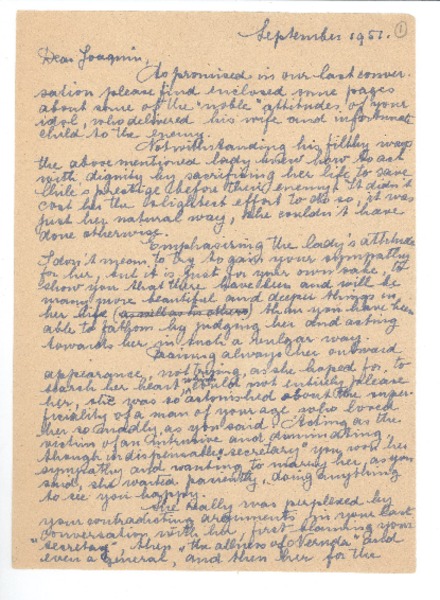 September 1951. 1
Dear Joaquin,
As promised in our last conver-
sation please find enclosed some pages
about some of the "noble" attitudes of your
idol, who delivered his wife and infortunate
child to the enemy.
Notwithstanding his filthy ways
the above mentioned lady knew how to act
with dignity by sacrificing her life to save
Chile's prestige before their enemy. It didn't
cost her the slightest effort to do so, it was
just her natural way, she couldn't have
done otherwise.
Emphasizing the lady's attitude
I don't mean to try to gain your sympathy
for her, but it is just for your own sake, to
show you that there have been and will be
many more beautiful and deeper things in
her life (as well as in others) than you have been
able to fathom by judging her and acting
towards her in such a vulgar way.
always her outward
appearance, not trying, as she hoped for, to
search her heart could not entirely please
her, she was so astonished about the super-
ficiality of a man of your age who loved
her so madly, as you said. Acting as the
victim of an intrusive and dominating
though indispensable "secretary" you won her
sympathy and wanting to marry her, as you
said, she wanted parently, doing anything
to see you happy.
She really was perplexed by
your contradicting arguments in your last
conversation with her, first blaming your
"secretary", then "the illness of Nernda" and
even a General, and then her for the